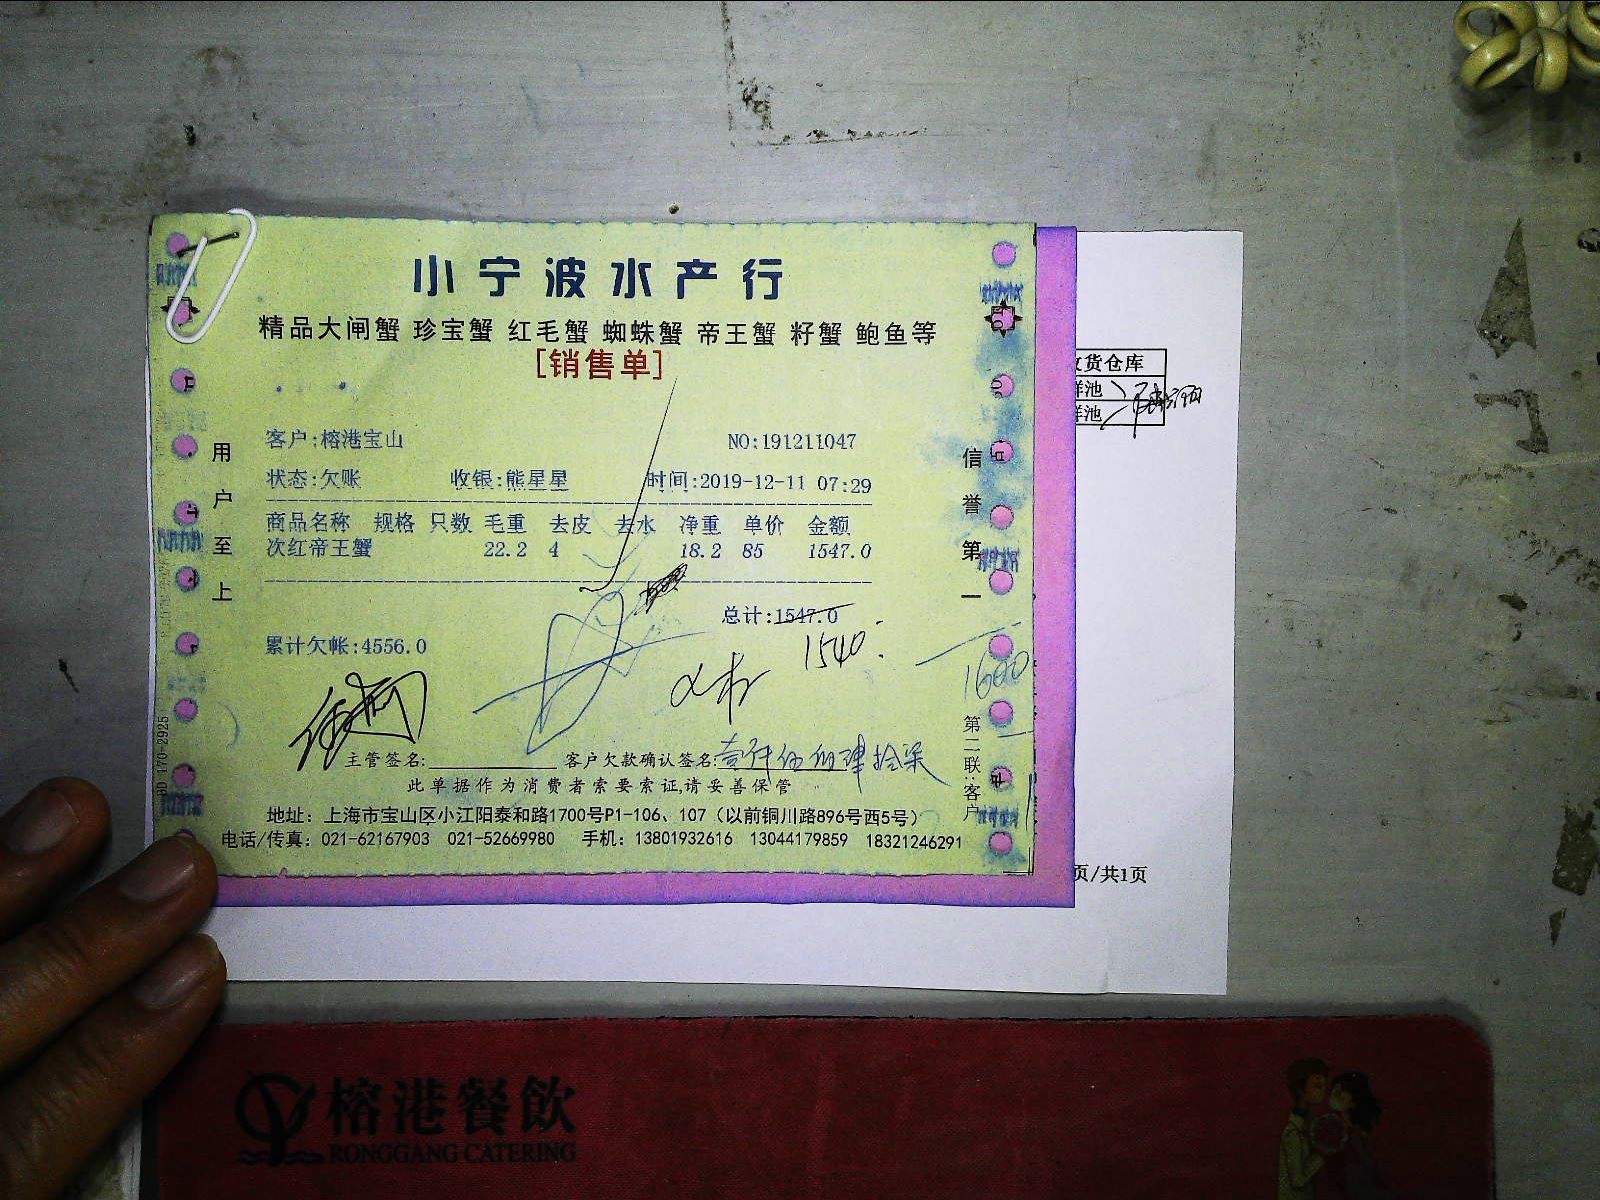 小宁波水产行
精品大闸蟹 珍宝蟹 红毛蟹 蜘蛛蟹 帝王蟹 籽蟹 鲍鱼等
[销售单]
客户:榕港宝山 NO:191211047
状态:欠账 收银:熊星星 时间:2019-12-11 07:29
商品名称 规格 只数 毛重 去皮 去水 净重 单价 金额
次红帝王蟹 22.2 4 18.2 85 1547.0
总计:1547.0
1540.
累计欠帐:4556.0
1600
主管签名: 客户欠款确认签名:壹仟伍佰肆拾柒
此单据作为消费者索要索证,请妥善保管
地址：上海市宝山区小江阳泰和路1700号P1-106、107（以前铜川路896号西5号）
电话/传真：021-62167903 021-52669980 手机：13801932616 13044179859 18321246291
用户至上
信誉第一
第二联:客户
BD 170-2925
收货仓库
鲜池
鲜池
页/共1页
榕港餐飲
RONGGANG CATERING